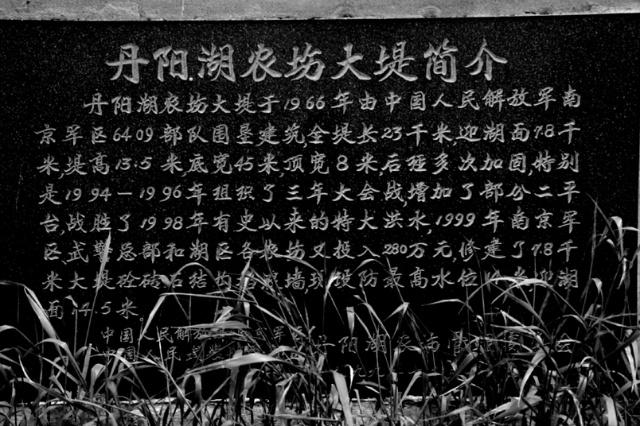 丹阳湖农坊大堤简介
丹阳湖农坊大堤于1966年由中国人民解放军南
京军区6409部队围垦建筑,全堤长23千米,迎湖面7.8千
米,堤高13.5米底宽45米,顶宽8米,后经多次加固,特别
是1994—1996年组织了三年大会战,增加了部分二平
台,战胜了1998年有史以来的特大洪水,1999年南京军
区武警总部和湖区各农坊又投入280万元,修建了7.8千
米大堤砼砌石结构 墙现设防最高水位 湖
面14.5米。
中国人民解放 军
中国人民武 丹阳湖农 会